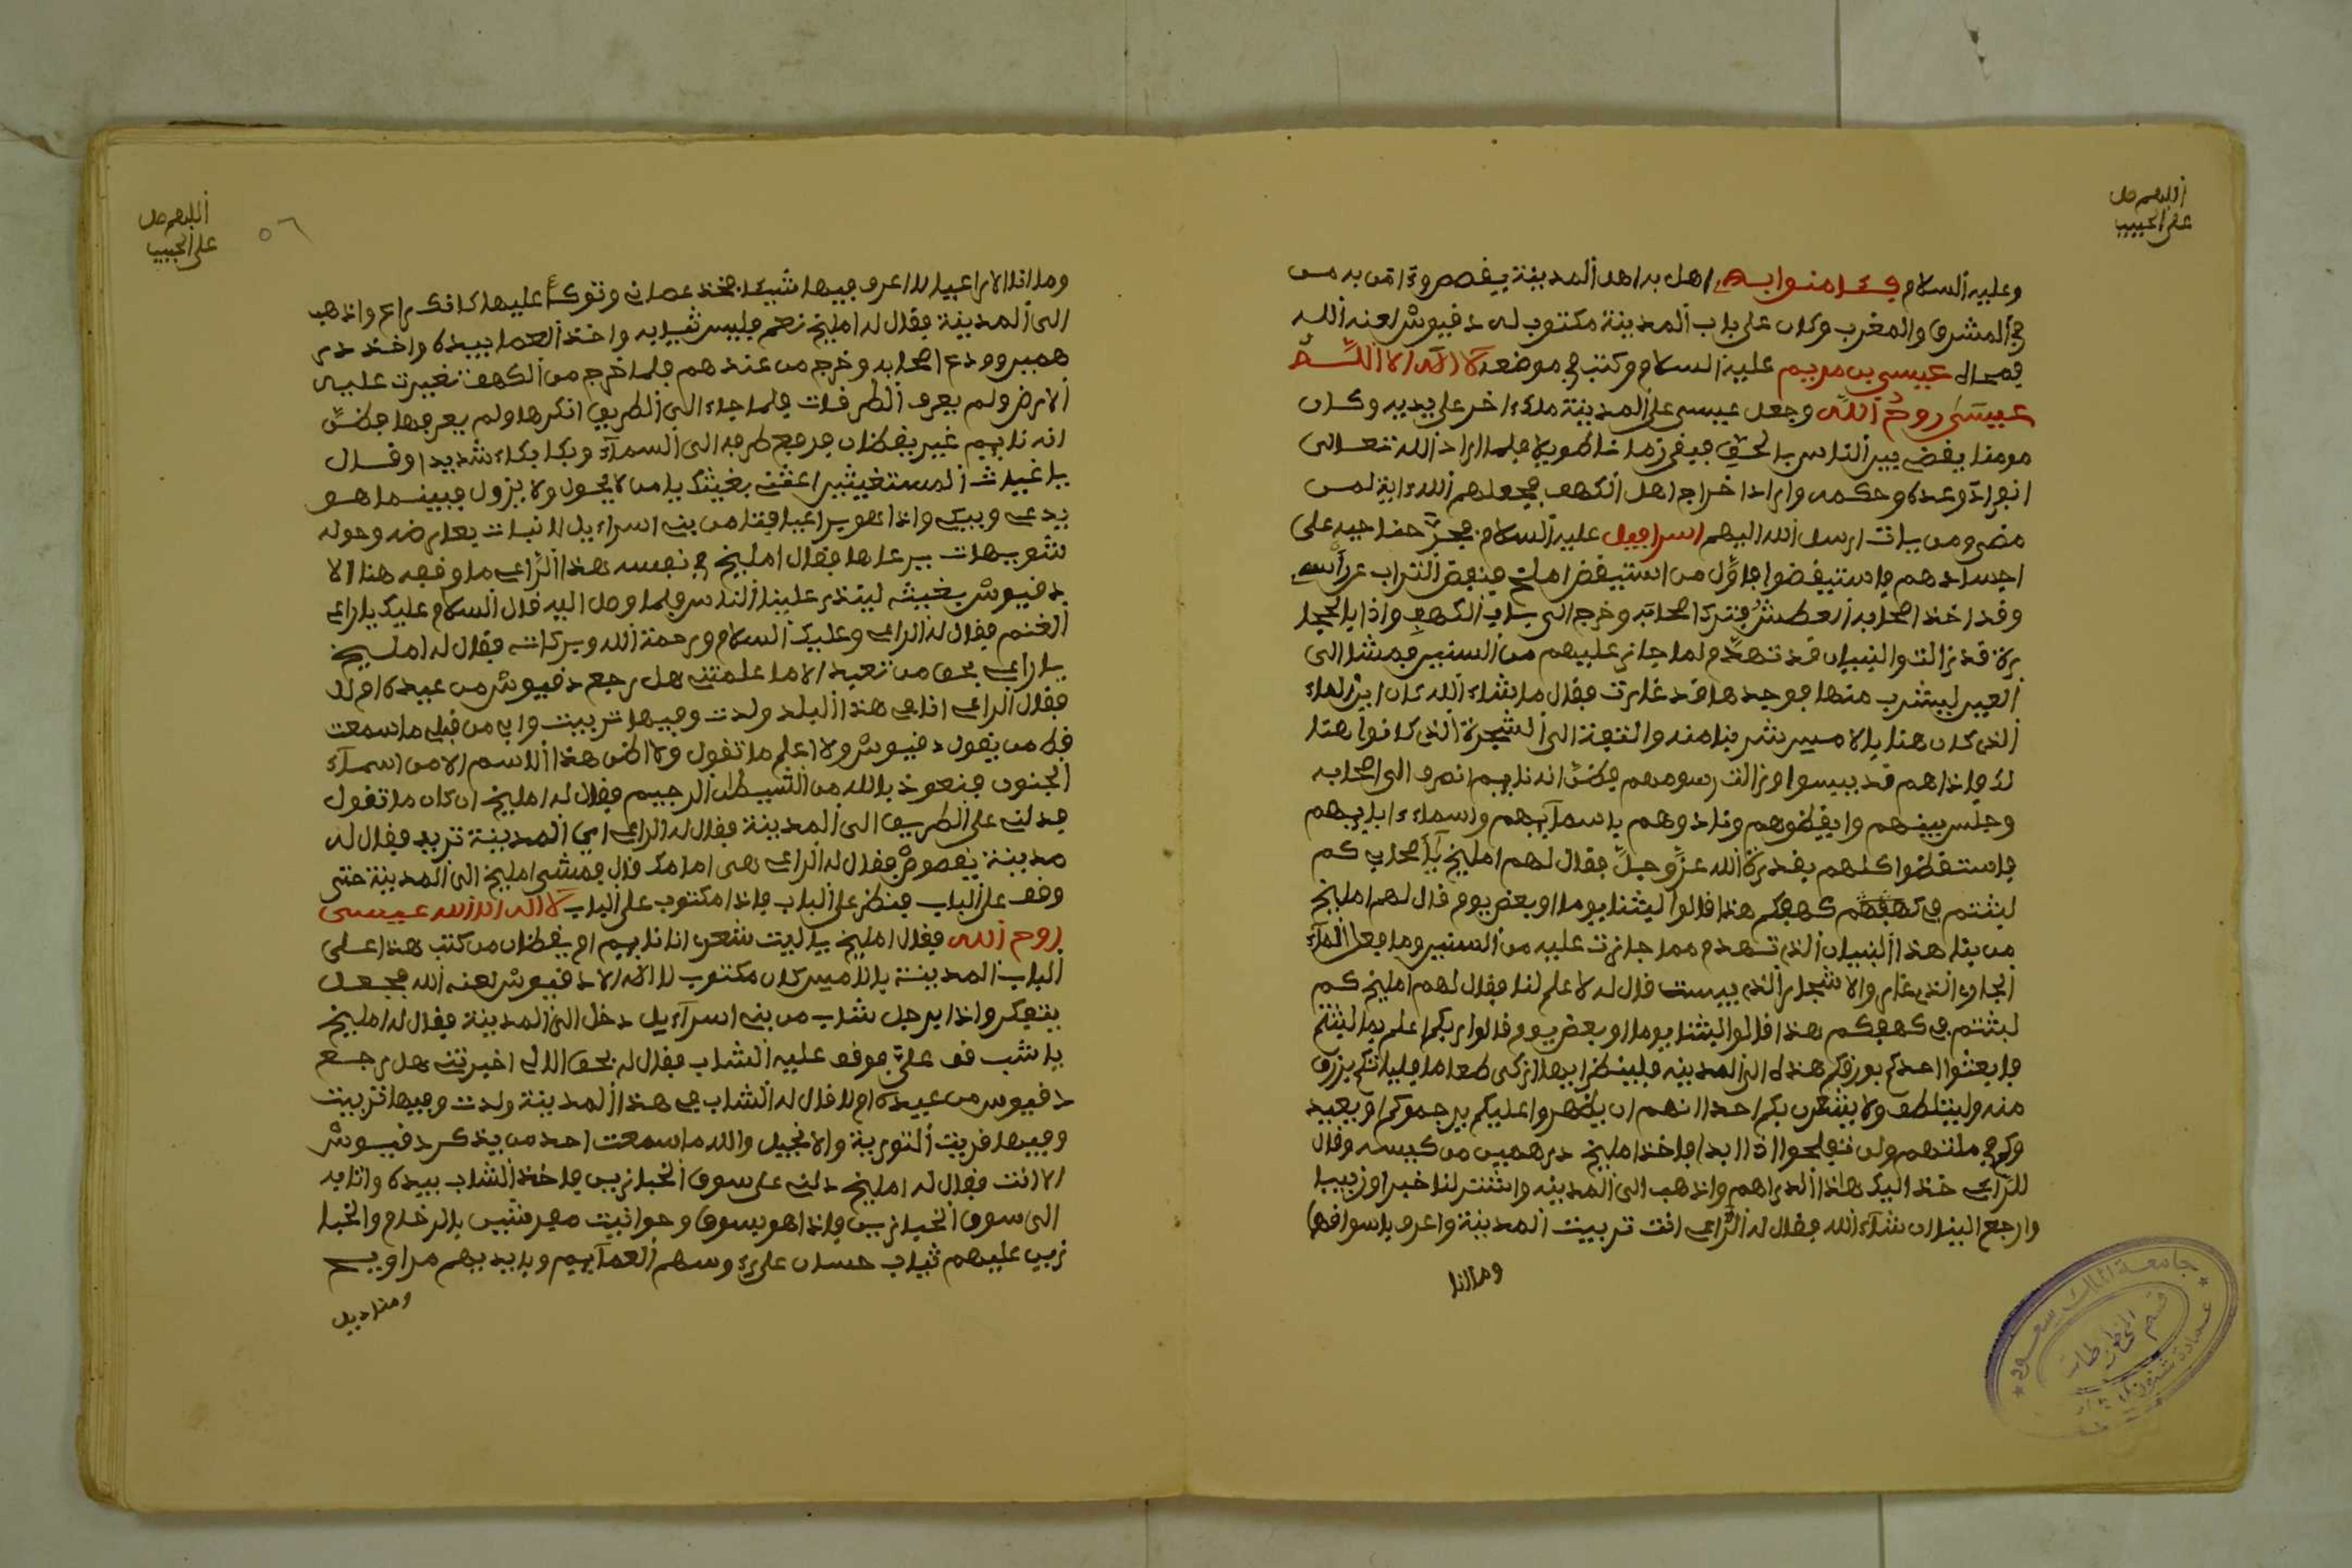 اللهم صل
على الحبيب
وعليه السلام فامنوا به اهل المدينة يفصص وءامن به من
في المشرق والمغرب وكان على باب المدينة مكتوب له دفيوش لعنه الله
فمحاه عيسى بن مريم عليه السلام وكتب في موضعه لا اله الا الله
عيسى روح الله وجعل عيسى على المدينة ملكا ءاخر على يديه وكان
مومنا يقضي بين الناس بالحق فبقى زمانا طويلا فلما اراد الله تعالى
انجاز وعده وحكمه واراد اخراج اهل الكهف فيجعلهم الله ءاية لمن
مضى ومن يات ارسل الله اليهم اسرافيل عليه السلام فجر جناحيه على
اجسادهم فاستيقضوا فاول من استيقض امليخ فنفض التراب عن راسه
وقد اخذ اصحابه العطش فترك اصحابه وخرج الى باب الكهف واذا بالحجا
رة قد زالت والبنيان قد تهدم لما جاز عليهم من السنين فمشا الى
العين ليشرب منها فوجدها قد غارت فقال ما شاء الله كان اين الماء
الذي كان هنا بالامس شربنا منه والتفت الى الشجرة الذي كانوا هنا
لك فاذا هم قد يبسوا وزالت رسومهم فظن انه نايم انصرف الى اصحابه
وجلس بينهم وايقظوهم ونادوهم باسمآيهم واسماء ءابايهم
فاستقظوا كلهم بقدرة الله عز وجل فقال لهم امليخ يا اصحابي كم
لبثتم في كهفكم هذا قالوا لبثنا يوما او بعض يوم قال لهم امليخ
من بنا هذا البنيان الذي تهدم مما جازت عليه من السنين وما فعل المآء
الجاري الذي غار والاشجار الذي يبست قال له لا علم لنا فقال لهم امليخ كم
لبثتم في كهفكم هذا قالوا لبثنا يوما او بعض يوم قالوا ربكم اعلم بما لبثتم
فابعثوا احدكم بورقكم هذه الى المدينة فلينظر ايها ازكى طعاما فلياتكم برزق
منه وليتلطف ولا يشعرن بكم احدا انهم ان يظهروا عليكم يرجموكم او يعيد
وكم في ملتهم ولن تفلحوا اذا ابدا فاخذ امليخ درهمين من كيسه وقال
للراعي خذ اليك هاذا الدراهم واذهب الى المدينة واشتر لنا خبزا وزبيبا
وارجع الينا ان شآء الله فقال له الراعي انت تربيت المدينة واعرف باسواقها
وما انا
اللهم صل
على الحبيب
٥٦
وما انا الا راعيا لا اعرف فيها شيئا فخذ عصاني وتوكأ عليها كانك راع واذهب
الى المدينة فقال له امليخ نعم فلبس ثيابه واخذ العصا بيده واخذ در
همين وودع اصحابه وخرج من عندهم فلما خرج من الكهف تغيرت عليه
الارض ولم يعرف الطرقات فلما جاء الى الطريق انكرها ولم يعرفها فظن
انه نايم غير يقظان فرفع طرفه الى السمآء وبكا بكاء شديدا وقال
يا غياث المستغيثين اغثني بغيثك يا من لا يحول ولا يزول فبينما هو
يدعي ويبكي واذا هو براعيا فتا من بني اسراءيل لا نبات بعارضه وحوله
شويهات يرعاها فقال امليخ في نفسه هذا الراعي ما وقف هنا الا
دفيوش بغيثه لينذر علينا الناس فلما وصل اليه قال السلام عليك يا راعي
الغنم فقال له الراعي وعليك السلام ورحمة الله وبركاته فقال له امليخ
يا راعي بحق من تعبد الا ما علمتني هل رجع دفيوش من عيده ام لا
فقال الراعي انا في هذا البلد ولدت وفيها تربيت وابي من قبلي ما سمعت
قط من يقول دفيوش ولا اعلم ما تقول ولا اظن هذا الاسم الا من اسمآء
الجنون فنعوذ بالله من الشيطان الرجيم فقال له امليخ ان كان ما تقول
فدلني على الطريق الى المدينة فقال له الراعي اي المدينة تريد فقال له
مدينة يفصوص فقال له الراعي هى امامك قال فمشى امليخ الى المدينة حتى
وقف على الباب فنظر على الباب فاذا مكتوب على الباب لا اله الا الله عيسى
روح الله فقال امليخ ياليت شعري انا نايم ام يقظان من كتب هذا على
الباب المدينة بالامس كان مكتوب لا اله الا دفيوش لعنه الله فجعل
يتفكر واذا برجل شاب من بني اسرآءيل دخل الى المدينة فقال له امليخ
يا شب قف علي فوقف عليه الشاب فقال له بحق الاله اخبرتني هل رجع
دفيوس من عيده ام لا قال له الشاب في هذا المدينة ولدت وفيها تربيت
وفيها قريت التورية والانجيل والله ما سمعت احد من يذكر دفيوش
الا انت فقال له امليخ دلني على سوق الخبازين فاخذ الشاب بيده واتا به
الى سوق الخبازين فاذا هو بسوق وحوانيت مفرشين بالرخام والخبا
زين عليهم ثياب حسان على رءوسهم العمآيم وبايديهم مراويح
ومناديل
جامعة الملك سعود
قسم المخطوطات
عمادة شئون المكتبات